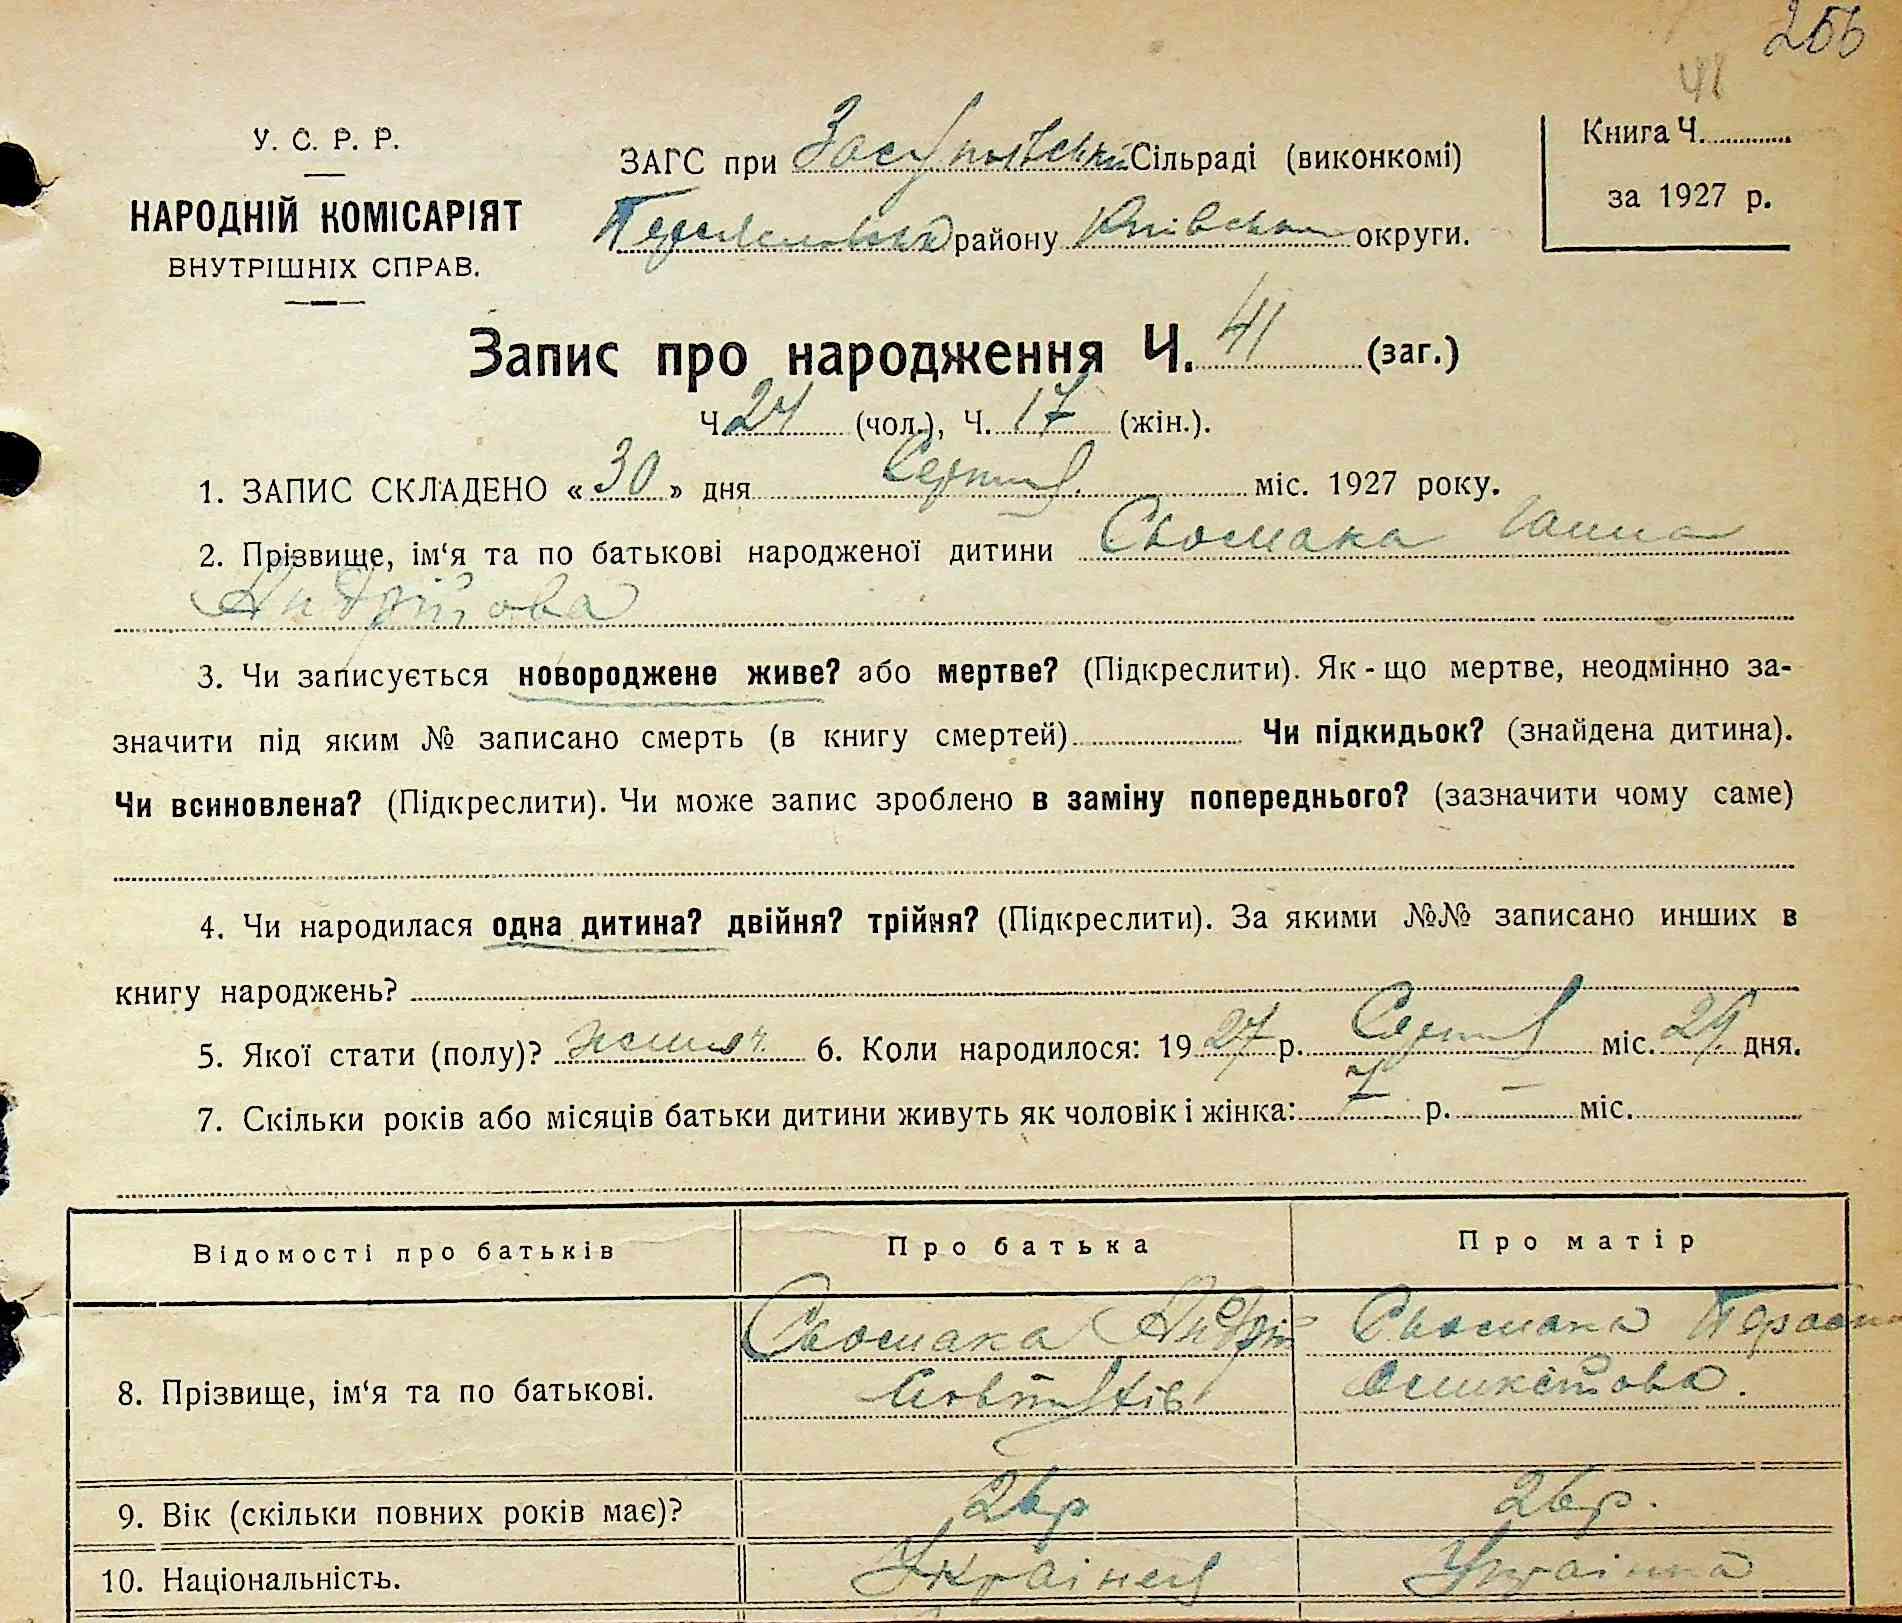 256
41
У. С. Р. Р.
НАРОДНІЙ КОМІСАРІЯТ
ВНУТРІШНІХ СПРАВ.
ЗАГС при Сільраді (виконкомі)
району Київської округи.
Книга Ч.
за 1927 р.
Запис про народження Ч. 41 (заг.)
Ч. 24 (чол.), Ч. 17 (жін.).
1. ЗАПИС СКЛАДЕНО «30» дня Серпня міс. 1927 року.
2. Прізвище, ім‘я та по батькові народженої дитини Сьомака Ганна
Андріїова
3. Чи записується новороджене живе? або мертве? (Підкреслити). Як-що мертве, неодмінно за-
значити під яким № записано смерть (в книгу смертей) Чи підкидьок? (знайдена дитина).
Чи всиновлена? (Підкреслити). Чи може запис зроблено в заміну попереднього? (зазначити чому саме)
4. Чи народилася одна дитина? двійня? трійня? (Підкреслити). За якими №№ записано инших в
книгу народжень?
5. Якої стати (полу)? жіноч. 6. Коли народилося: 1927 р. Серпня міс. 29 дня.
7. Скільки років або місяців батьки дитини живуть як чоловік і жінка: 7 р. — міс.
Відомості про батьків Про батька Про матір
8. Прізвище, ім‘я та по батькові. Сьомака Андрій Сьомака
9. Вік (скільки повних років має)? 26 р 26 р.
10. Національність. Українец Українка